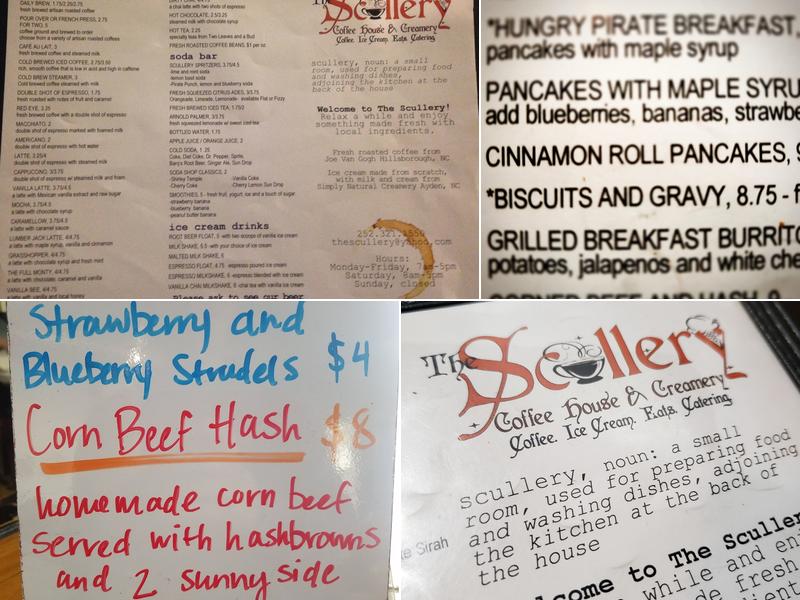 DAILY BREW, 1.75/2.25/2.75
fresh brewed artisan roasted coffee
POUR OVER OR FRENCH PRESS, 2.75
FOR TWO, 5
coffee ground and brewed to order
choose from a variety of artisan roasted coffees
CAFE AU LAIT, 3
fresh brewed coffee and steamed milk
COLD BREWED ICED COFFEE, 2.75/3.50
rich, smooth coffee that is low in acid and high in caffeine
COLD BREW STEAMER, 3
Cold brewed coffee steamed with milk
DOUBLE SHOT OF ESPRESSO, 1.75
fresh roasted with notes of fruit and caramel
RED EYE, 3.25
fresh brewed coffee with a double shot of espresso
MACCHIATO, 2
double shot of espresso marked with foamed milk
AMERICANO, 2
double shot of espresso with hot water
LATTE, 3.25/4
double shot of espresso with steamed milk
CAPPUCCINO, 3/3.75
double shot of espresso w/ steamed milk and foam
VANILLA LATTE, 3.75/4.5
a latte with Mexican vanilla extract and raw sugar
MOCHA, 3.75/4.5
a latte with chocolate syrup
CARAMELLOW, 3.75/4.5
a latte with caramel sauce
LUMBER JACK LATTE, 4/4.75
a latte with maple syrup, vanilla and cinnamon
GRASSHOPPER, 4/4.75
a latte with chocolate syrup and fresh mint
THE FULL MONTY, 4/4.75
a latte with chocolate, caramel and vanilla
VANILLA BEE, 4/4.75
a latte with vanilla and local honey
a chai latte with two shots of espresso
HOT CHOCOLATE, 2.5/3.25
steamed milk with chocolate syrup
HOT TEA, 2.25
specialty teas from Two Leaves and a Bud
FRESH ROASTED COFFEE BEANS, $1 per oz
soda bar
SCULLERY SPRITZERS, 3.75/4.5
-lime and mint soda
-lemon basil soda
-Pirate Punch, lemon and blueberry soda
FRESH SQUEEZED CITRUS ADES, 3/3.75
Orangeade, Limeade, Lemonade- available Flat or Fizzy
FRESH BREWED ICED TEA, 1.75/2
ARNOLD PALMER, 3/3.75
fresh squeezed lemonade w/ sweet iced tea
BOTTLED WATER, 1.75
APPLE JUICE / ORANGE JUICE, 2
COLD SODA, 1.25
Coke, Diet Coke, Dr. Pepper, Sprite,
Barq's Root Beer, Ginger Ale, Sun Drop
SODA SHOP CLASSICS, 2
-Shirley Temple -Vanilla Coke
-Cherry Coke -Cherry Lemon Sun Drop
SMOOTHIES, 5 - fresh fruit, yogurt, ice and a touch of sugar
-strawberry banana
-blueberry banana
-peanut butter banana
ice cream drinks
ROOT BEER FLOAT, 5 with two scoops of vanilla ice cream
MILK SHAKE, 5.5 -with your choice of ice cream
MALTED MILK SHAKE, 6
ESPRESSO FLOAT, 4.75 -espresso poured ice cream
ESPRESSO MILKSHAKE, 6 -espresso blended with ice cream
VANILLA CHAI MILKSHAKE, 6 -chai tea with vanilla ice cream
Please ask to see our beer
The Scullery
Coffee House & Creamery
Coffee. Ice Cream. Eats. Catering.
scullery, noun: a small
room, used for preparing food
and washing dishes,
adjoining the kitchen at the
back of the house
Welcome to The Scullery!
Relax a while and enjoy
something made fresh with
local ingredients.
Fresh roasted coffee from
Joe Van Gogh Hillsborough, NC
Ice cream made from scratch,
with milk and cream from
Simply Natural Creamery Ayden, NC
252.321.1550
thescullery@yahoo.com
Hours:
Monday-Friday, 7am-5pm
Saturday, 8am-5pm
Sunday, closed
*HUNGRY PIRATE BREAKFAST,
pancakes with maple syrup
PANCAKES WITH MAPLE SYRU
add blueberries, bananas, strawbe
CINNAMON ROLL PANCAKES, 9
*BISCUITS AND GRAVY, 8.75 - f
GRILLED BREAKFAST BURRITO
potatoes, jalapenos and white che
CORNED BEEF AND HASH, 9
Strawberry and
Blueberry Strudels $4
Corn Beef Hash $8
homemade corn beef
served with hashbrowns
and 2 sunny side
The Scullery
Coffee House & Creamery
Coffee. Ice Cream. Eats. Catering.
scullery, noun: a small
room, used for preparing food
and washing dishes, adjoining
the kitchen at the back of
the house
te Sirah
lcome to The Sculler
while and en
de fresh